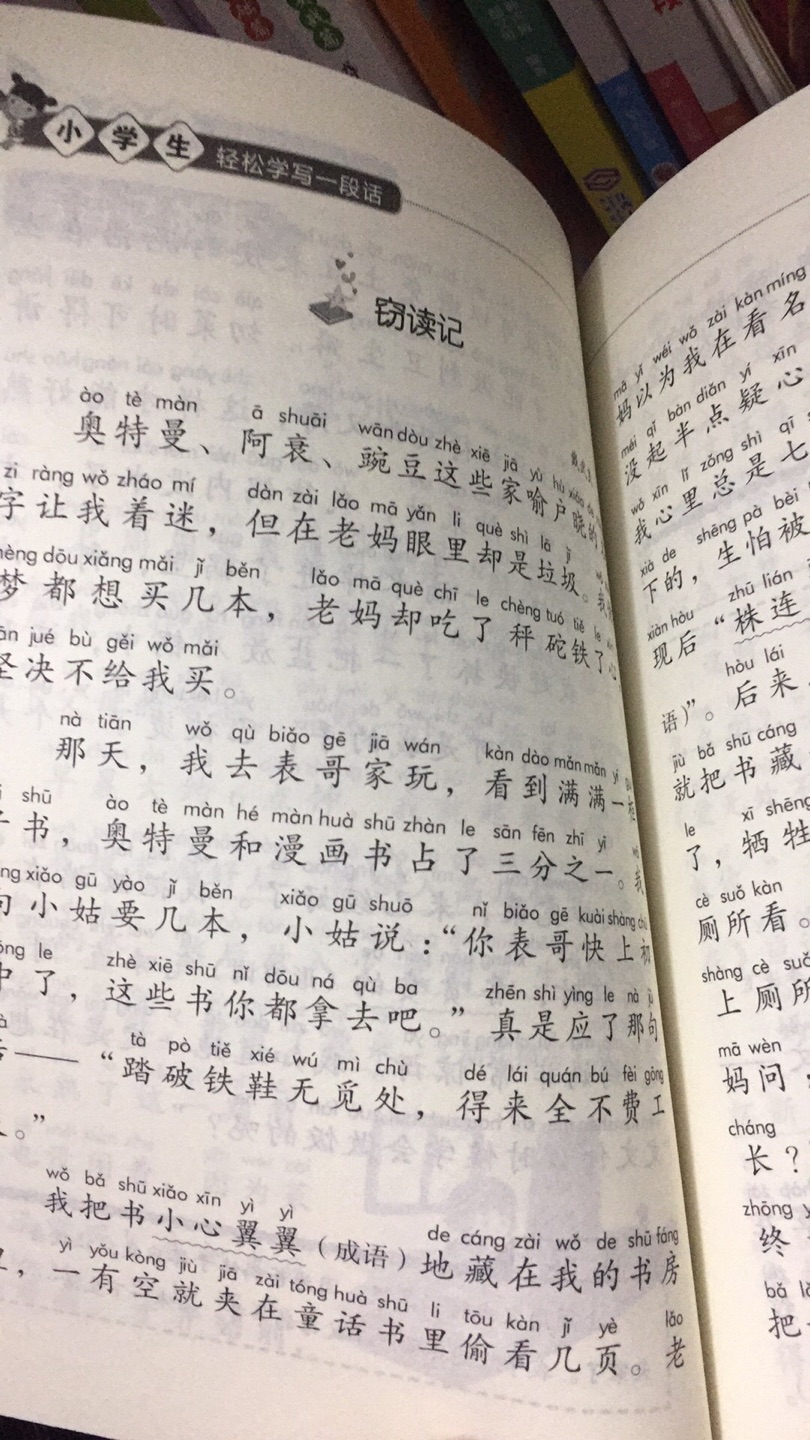 小学生 轻松学写一段话
窃读记
ào tè màn ā shuāi wān dòu zhè xiē jiā yù hù
奥特曼、阿衰、豌豆这些家喻户晓的
zi ràng wǒ zháo mí dàn zài lǎo mā yǎn li què shì lā jī
字让我着迷，但在老妈眼里却是垃圾。我
mèng dōu xiǎng mǎi jǐ běn lǎo mā què chī le chèng tuó tiě le
梦都想买几本，老妈却吃了秤砣铁了心
jué bù gěi wǒ mǎi
坚决不给我买。
nà tiān wǒ qù biǎo gē jiā wán kàn dào mǎn mǎn yì
那天，我去表哥家玩，看到满满一柜
shū ào tè màn hé màn huà shū zhàn le sān fēn zhī yī
子书，奥特曼和漫画书占了三分之一。我
xiǎo gū yào jǐ běn xiǎo gū shuō nǐ biǎo gē kuài shàng chū
向小姑要几本，小姑说：“你表哥快上初
le zhè xiē shū nǐ dōu ná qù ba zhēn shì yìng le nà jù
中了，这些书你都拿去吧。”真是应了那句
tà pò tiě xié wú mì chù dé lái quán bú fèi gōng
话——“踏破铁鞋无觅处，得来全不费工
。”
wǒ bǎ shū xiǎo xīn yì yì de cáng zài wǒ de shū fáng
我把书小心翼翼（成语）地藏在我的书房
yì yǒu kòng jiù jiā zài tóng huà shū li tōu kàn jǐ yè lǎo
，一有空就夹在童话书里偷看几页。老
mā yǐ wéi wǒ zài kàn míng
妈以为我在看名
méi qǐ bàn diǎn yí xīn
没起半点疑心
wǒ xīn lǐ zǒng shì qī
我心里总是七
xià de shēng pà bèi
下的，生怕被
xiàn hòu zhū lián
现后“株连
hòu lái
语）”。后来
jiù bǎ shū cáng
就把书藏
le xī shēng
了，牺牲
cè suǒ kàn
厕所看。
shàng cè suǒ
上厕所
mā wèn
妈问，
cháng
长？
zhōng
终
bǎ
把